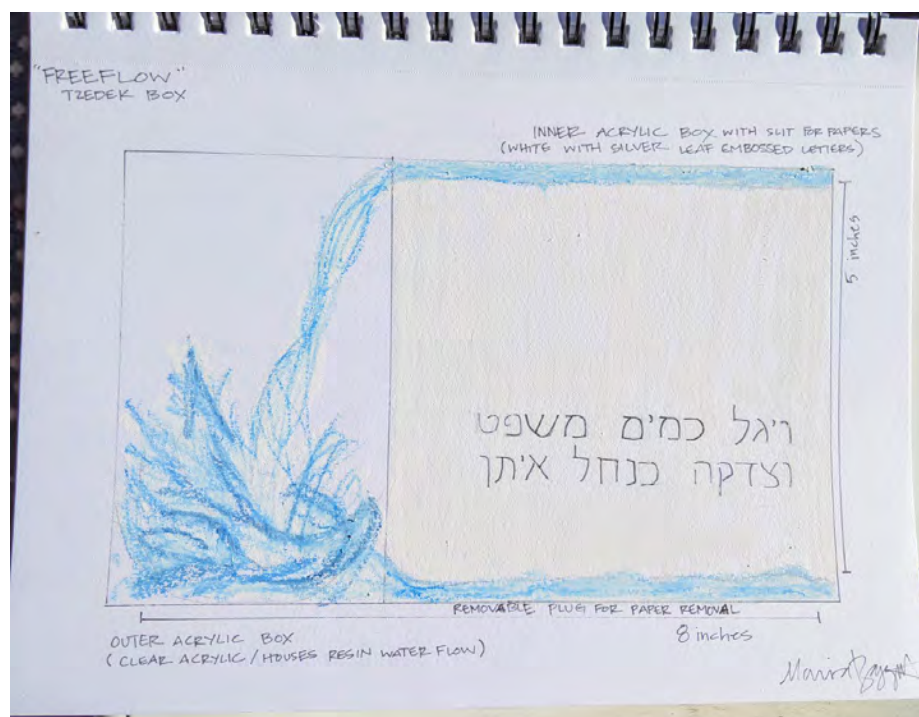 "FREEFLOW"
TZEDEK BOX
INNER ACRYLIC BOX WITH SLIT FOR PAPERS
(WHITE WITH SILVER LEAF EMBOSSED LETTERS)
5 inches
ויגל כמים משפט
וצדקה כנחל איתן
REMOVABLE PLUG FOR PAPER REMOVAL
8 inches
OUTER ACRYLIC BOX
(CLEAR ACRYLIC/HOUSES RESIN WATER FLOW)